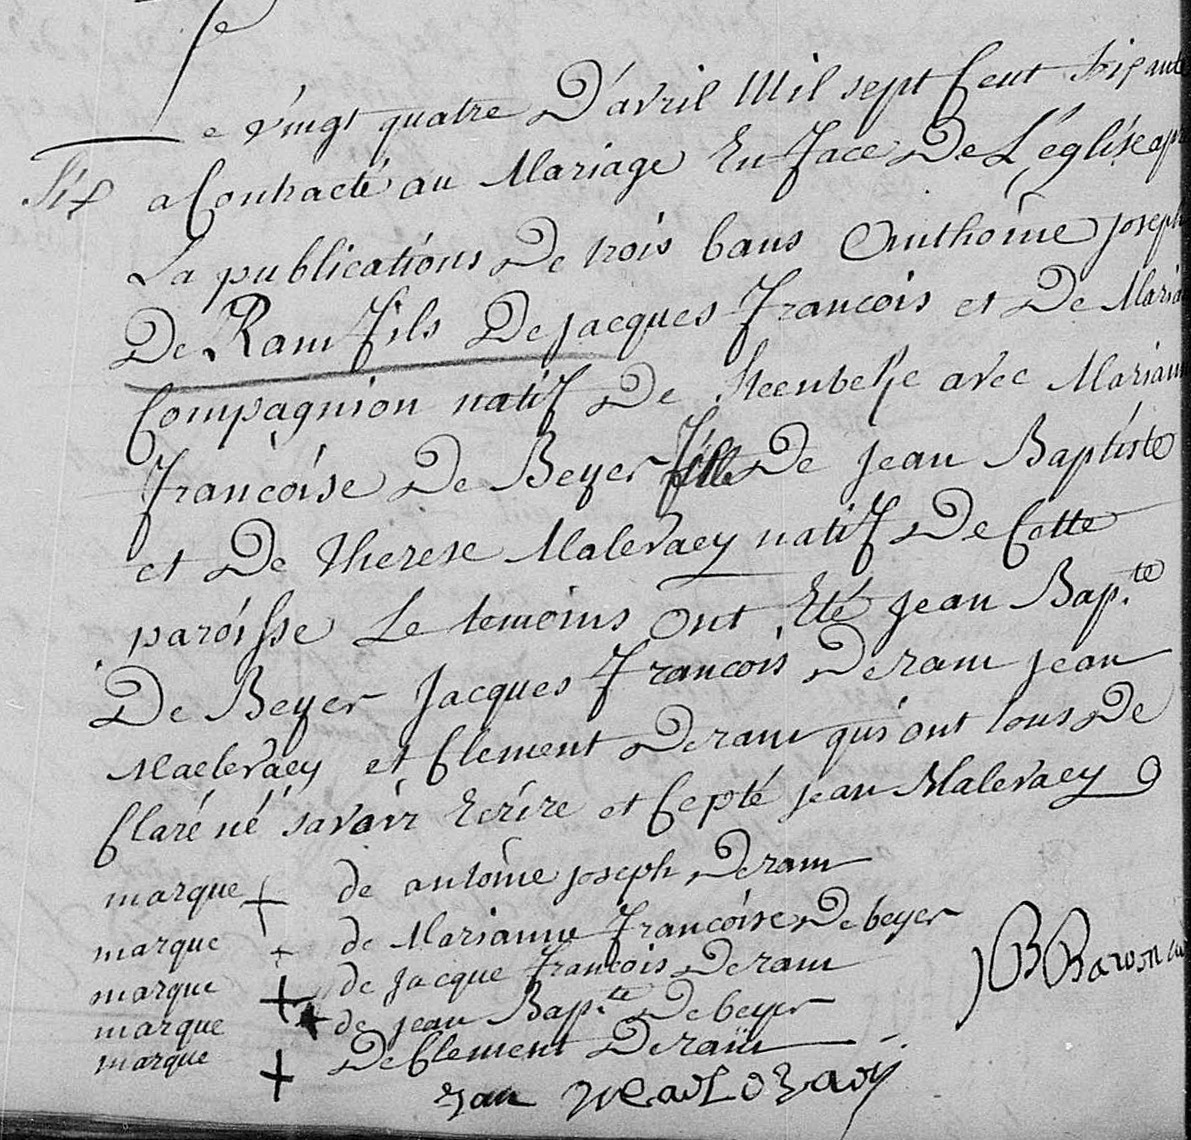 Le vingt quatre D'avril Mil sept Cent soixante
Six a Contracté au Mariage En face De L'église après
La publications De trois bans Anthoine joseph
De Ram fils De jacques francois et De Maria
Compagnion natif De Steenbeke avec Mariann
francoise De Beyer fille De jean Baptiste
et De Therese Malevaey natif De Cette
paroisse Le temoins ont Eté jean Bap.te
De Beyer Jacques francois Deram jean
Maelevaey et Clement Deram qui ont tous De
Claré né savoir Ecrire et Cepté jean Malevaey
marque + de antoine joseph Deram
marque + de Marianne francoise Debeyer
marque + de jacque francois Deram
marque + de jean Bap.te Debeyer
marque + De Clement Deram
Jan
JB Baron